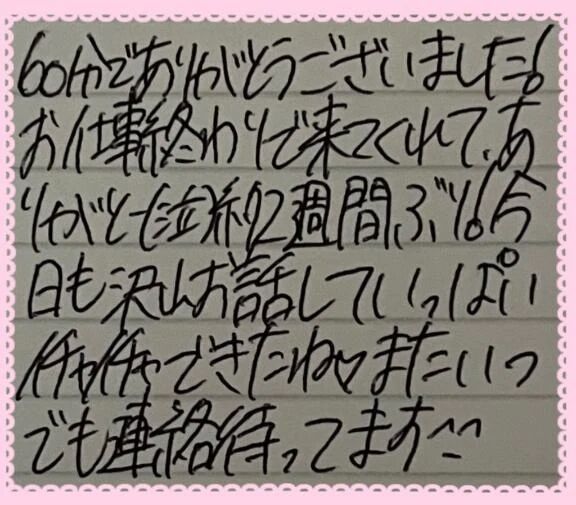 60分でありがとうございました!
お仕事終わりで来てくれて、あ
りがと(泣)約2週間ぶり!今
日も沢山お話していっぱい
イチャイチャできたね♡またいつ
でも連絡待ってます^^